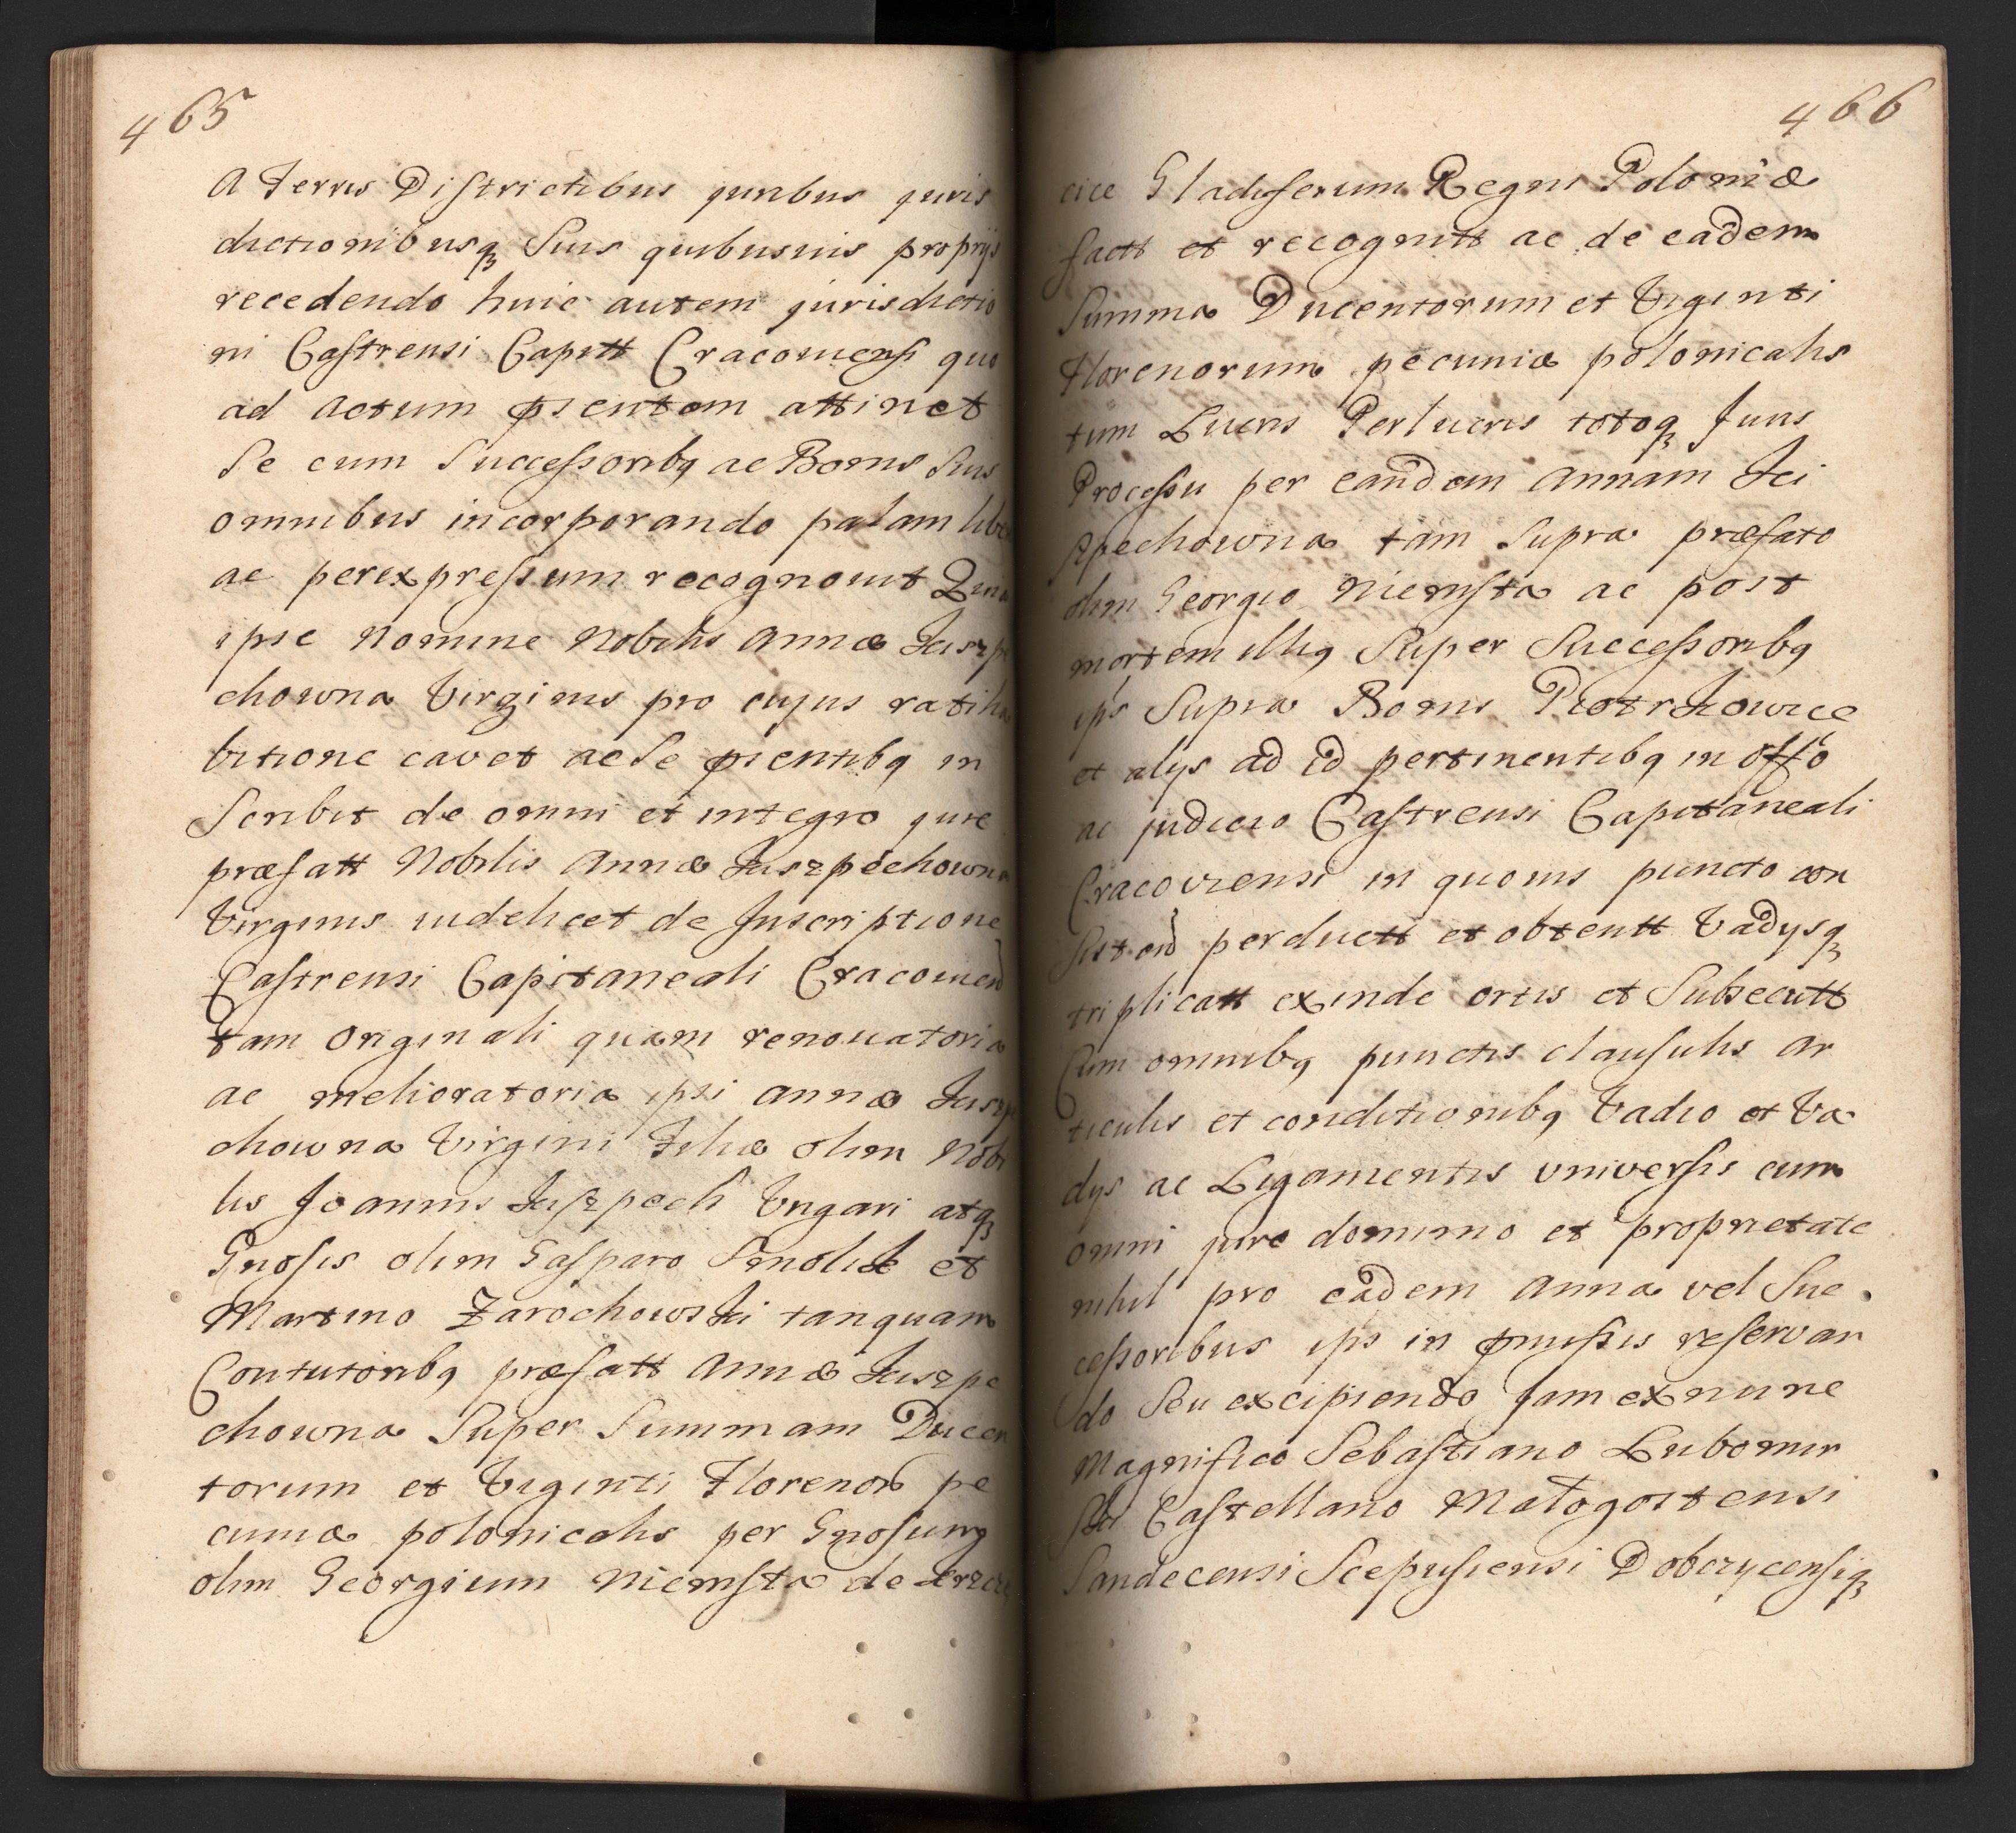 465
A Terris Districtibus juribus juris
dictionibusq Suis quibusuis proprijs
recedendo huic autem jurisdictio
ni Castrensi Capitt Cracouiensi quo
ad Actum psentem attinet
Se cum Successoribq ac Bonis Suis
omnibus incorporando palam
ac per expressum recognouit Quia
ipse Nomine Nobilis Annæ Juszpe
chowna Virginis pro cujus ratiha
bitione cavet ac Se psentibq in
Scribit de omni et integro jure
præfatt Nobilis Annæ Juszpechowna
Virginis uidelicet de Inscriptione
Castrensi Capitaneali Cracouien
tam Originali quam renouatoria
ac melioratoria ipsi Annæ Juszpe
chowna Virgini Filiæ olim Nobi
lis Joannis Juszpech Vngari atq
Gnosis olim Gasparo Smolik et
Martino Zarochowski tanquam
Contutoribq præfatt Annæ Juszpe
chowna Super Summam Ducen
torum et Viginti Florenor pe
cuniæ polonicalis per Gnosum
olim Georgium Niemsta de
466
cice Gladiferum Regni Poloniæ
factt et recognitt ac de eadem
Summa Ducentorum et Viginti
Florenorum pecuniæ polonicalis
tum Lucris Perlucris totoq Juris
Processu per eandem Annam Jei
spechowna tam Supra præfato
olim Georgio Niemsta ac post
mortem illiq Super Successoribq
ips Supra Bonis Piotrkowice
et alijs ad id pertinentibq in offo
ac judicio Castrensi Capitaneali
Cracoviensi in quouis puncto con
sistend perductt et obtentt Vadysq
triplicatt exinde ortis et Subsecutt
Cum omnibq punctis clausulis Ar
ticulis et conditionibq Vadio et Va
dys ac Ligamentis vniversis cum
omni jure dominio et proprietate
nihil pro eadem Anna vel Suc
cessoribus ips in pmissis reservan
do Seu excipiendo Jam ex nunc
Magnifico Sebastiano Lubomir
ski Castellano Małogostensi
Sandecensi Scepusiensi Dobczycensiq